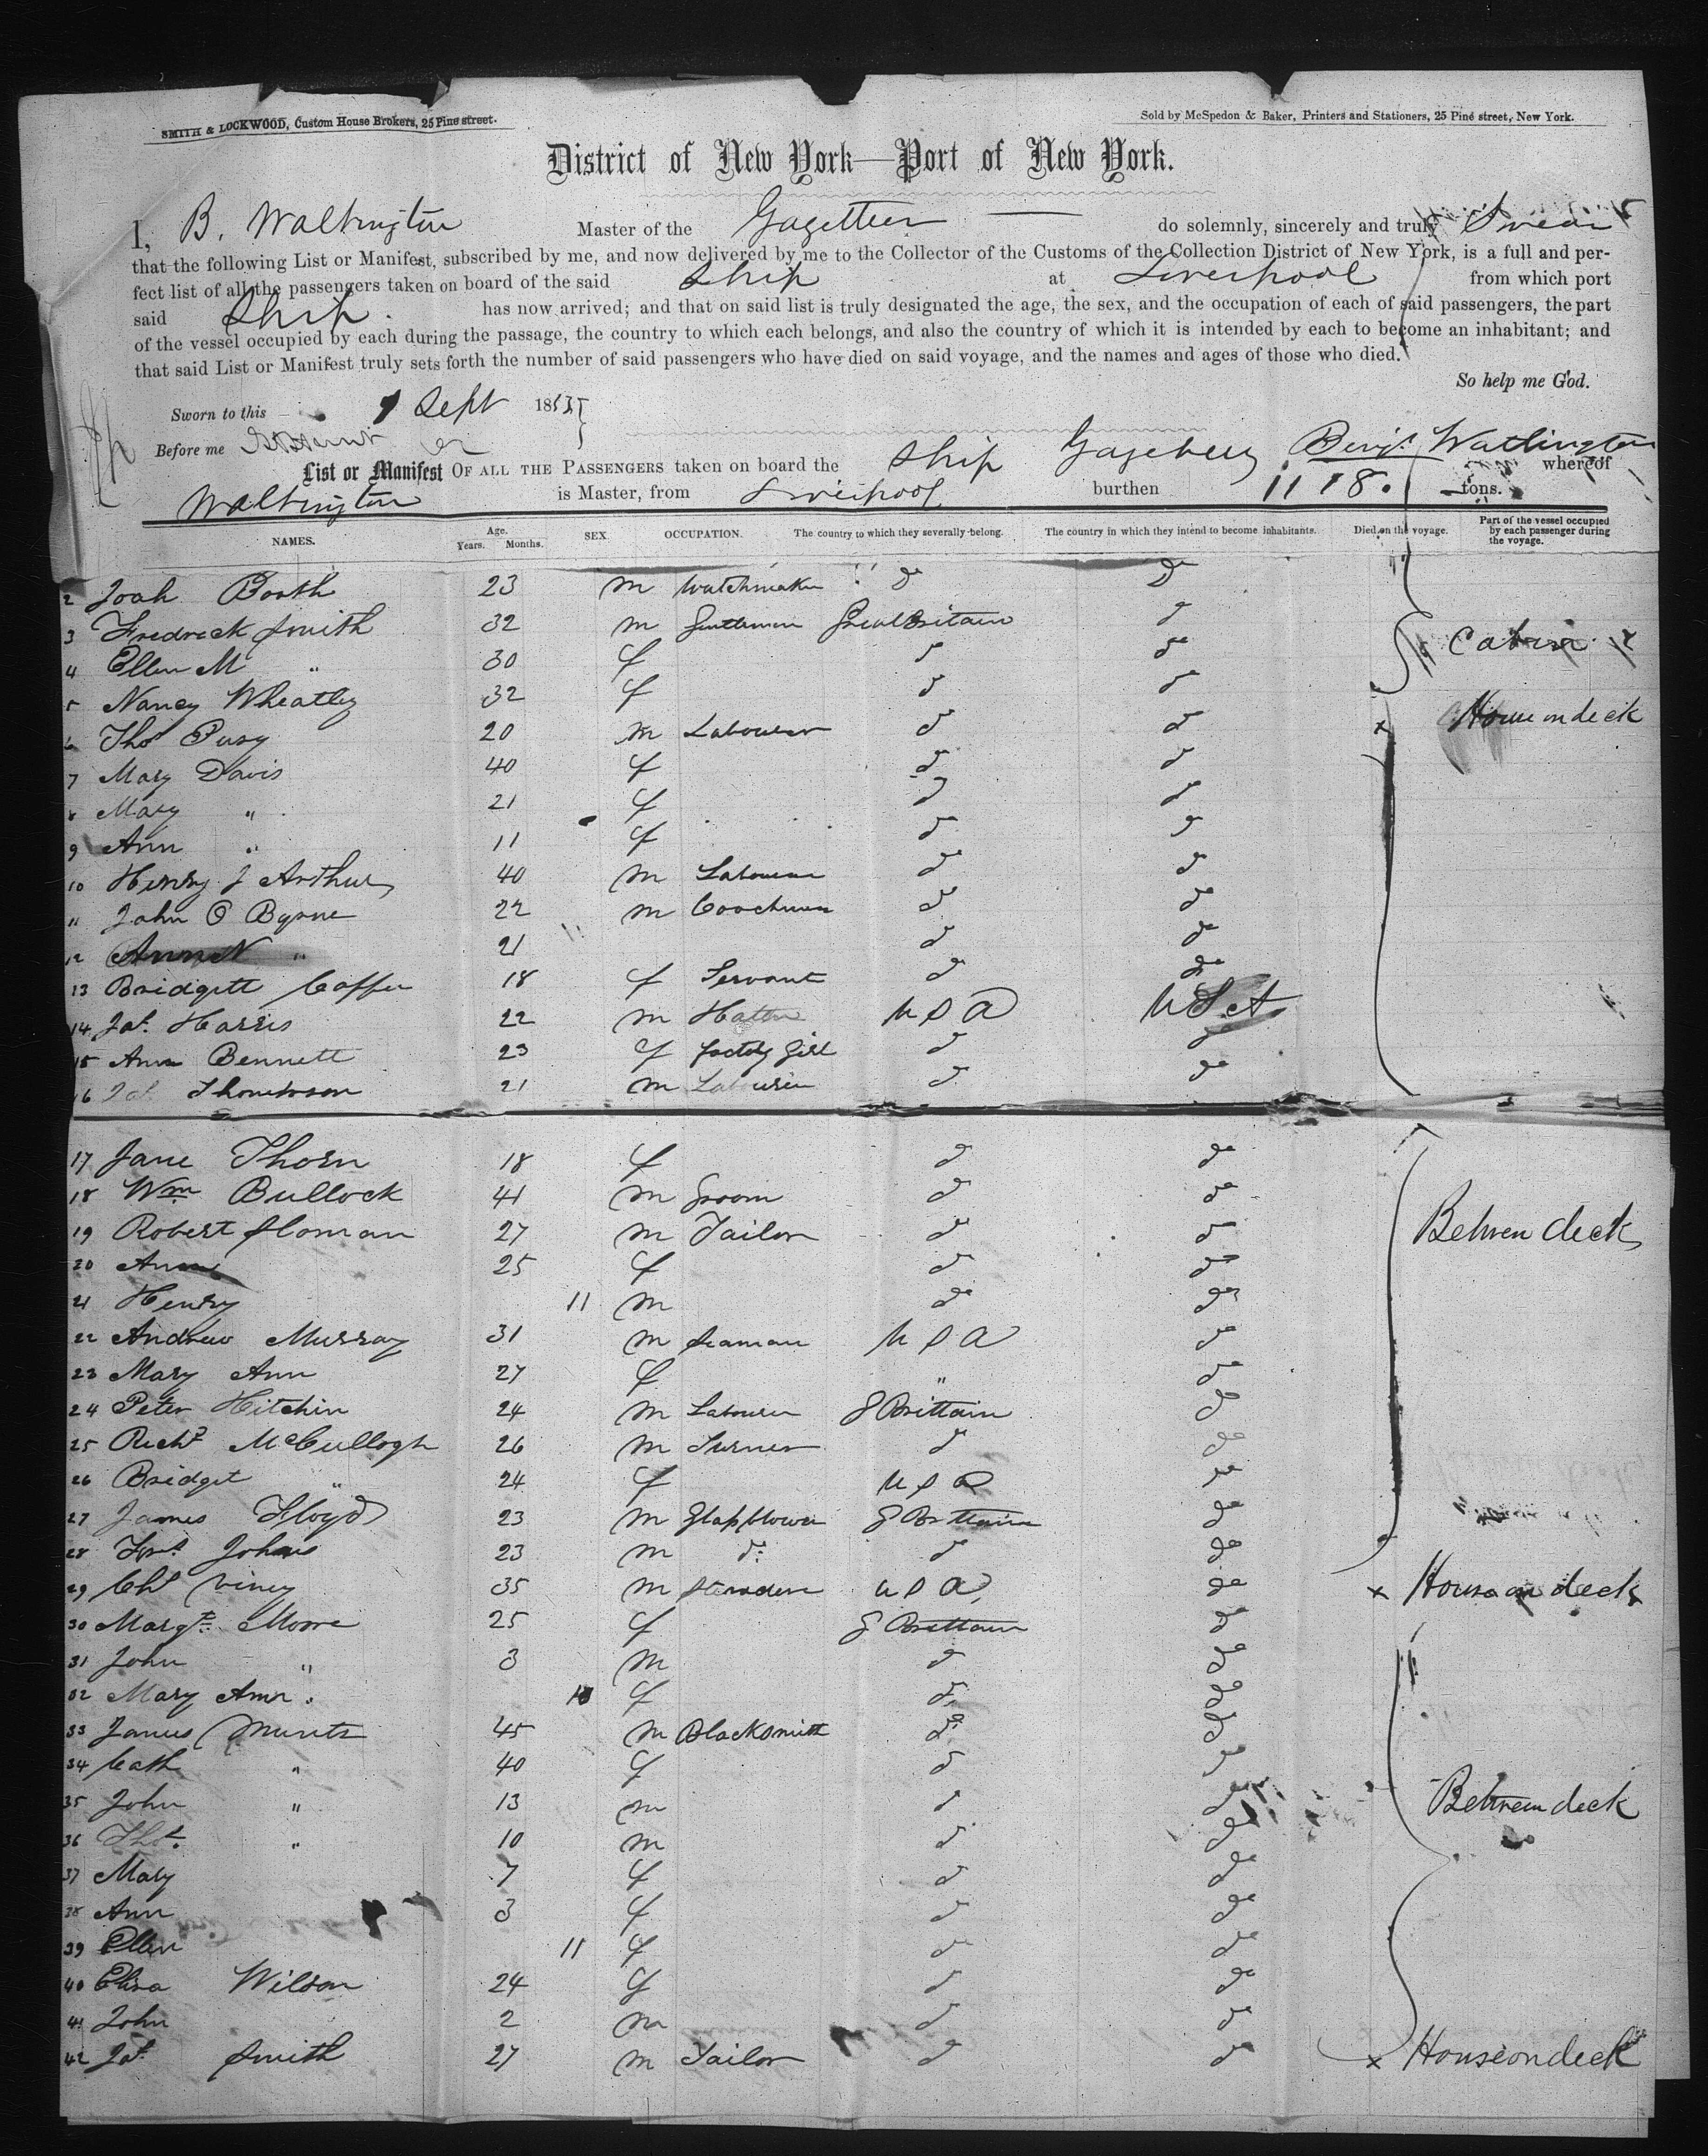 SMITH & LOCKWOOD, Custom House Brokers, 25 Pine street.
Sold by McSpedon & Baker, Printers and Stationers, 25 Pine street, New York.
District of New York—Port of New York.
I, B. Waltington Master of the Gazetteer do solemnly, sincerely and truly Swear
that the following List or Manifest, subscribed by me, and now delivered by me to the Collector of the Customs of the Collection District of New York, is a full and per-
fect list of all the passengers taken on board of the said Ship at Liverpool from which port
said Ship. has now arrived; and that on said list is truly designated the age, the sex, and the occupation of each of said passengers, the part
of the vessel occupied by each during the passage, the country to which each belongs, and also the country of which it is intended by each to become an inhabitant; and
that said List or Manifest truly sets forth the number of said passengers who have died on said voyage, and the names and ages of those who died.
So help me God.
Sworn to this 1 Sept 185
Before me
List or Manifest OF ALL THE PASSENGERS taken on board the Ship Benjn Watlington whereof
Waltington is Master, from Liverpool burthen 1118. tons.
NAMES. Age. Years. Months. SEX. OCCUPATION. The country to which they severally belong. The country in which they intend to become inhabitants. Died on the voyage. Part of the vessel occupied by each passenger during the voyage.
2 Joah Booth 23 m Watchmaker do do
3 Fredrick Smith 32 m Gentleman Great Britain do
4 Ellen M " 30 f do do Cabin
5 Nancy Wheatley 32 f do do
6 Thos Pusy 20 m Labourer do do x House on deck
7 Mary Davis 40 f do do
8 Mary " 21 f do do
9 Ann " 11 f do do
10 Henry J Arthurs 40 m Labourer do do
11 John O Byrne 22 m Coachman do do
12 Ann N " 21 do do
13 Bridgett Caffer 18 f Servant do do
14 Jas. Harris 22 m Hatter U S A U S A
15 Ann Bennett 23 f factory Girl do do
16 Jas Thombson 21 m Labourer do do
17 Jane Thorn 18 f do do
18 Wm Bullock 41 m Groom do do
19 Robert Sloman 27 m Tailor do do Betwen deck
20 Ann 25 f do do
21 Henry 11 m do do
22 Andrew Murray 31 m Seaman U S A do
23 Mary Ann 27 f " do
24 Peter Hitchin 24 m Labourer G Brittain do
25 Richd McCullogh 26 m Turner do do
26 Bridget " 24 f U S A do
27 James Floyd 23 m Glassblower G Brittain do
28 Johns 23 m do do do
29 Viney 35 m U S A do x House on deck
30 Margt. Moore 25 f G Brittain do
31 John " 3 m do do
32 Mary Ann " 10 f do do
33 James Muntz 45 m Blacksmith do do
34 Cath " 40 f do do
35 John " 13 m do do Betwen deck
36 Thos. " 10 m do do
37 Mary 7 f do do
38 Ann 3 f do do
39 Ellen 11 f do do
40 Eliza Wilson 24 f do do
41 John 2 m do do
42 Jas. Smith 27 m Tailor do do x House on deck